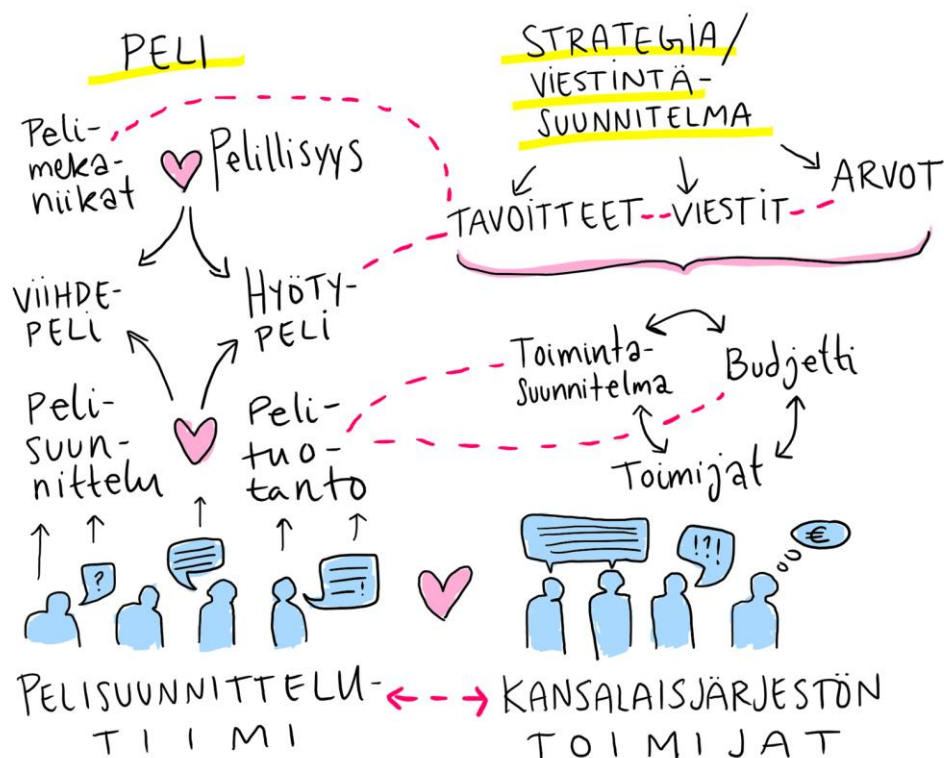 PELI
Peli-
meka-
niikat
Pelillisyys
VIIHDE-
PELI
HYÖTY-
PELI
Peli-
suun-
nittelu
Peli-
tuo-
tanto
?
!
PELISUUNNITTELU-
TIIMI
STRATEGIA/
VIESTINTÄ-
SUUNNITELMA
TAVOITTEET
VIESTIT
ARVOT
Toiminta-
suunnitelma
Budjetti
Toimijat
!?!
€
KANSALAISJÄRJESTÖN
TOIMIJAT